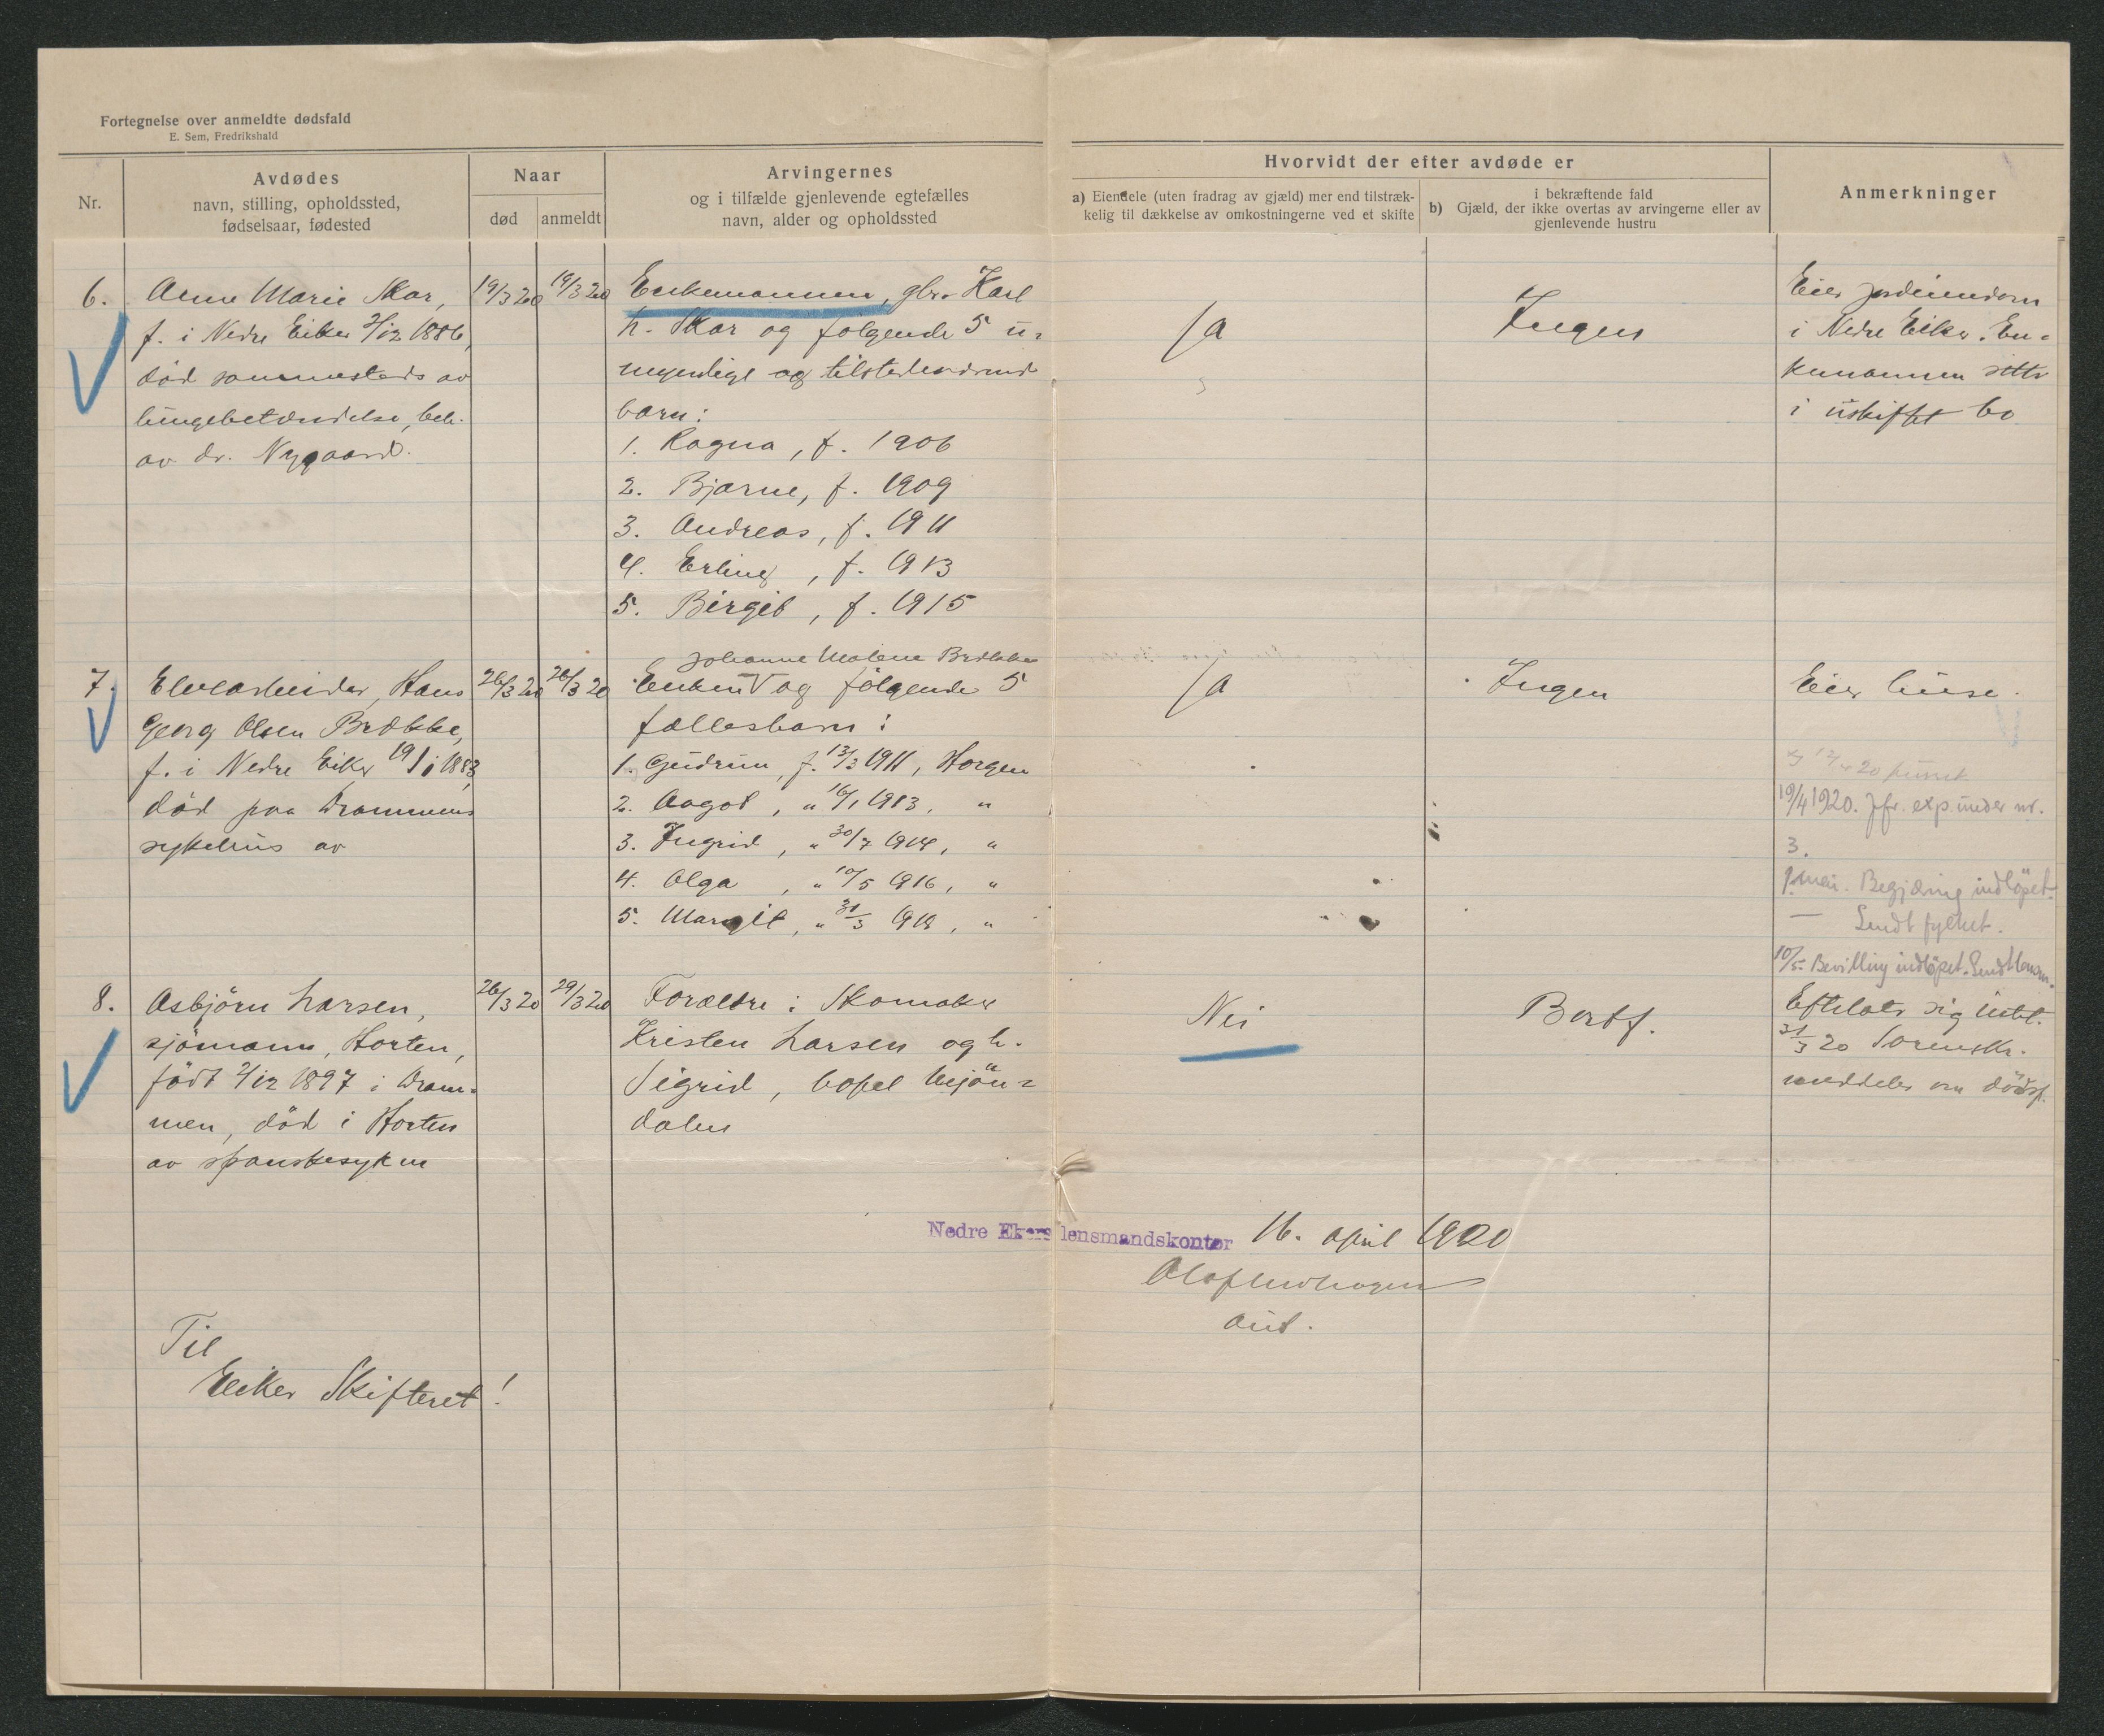 Fortegnelse over anmeldte dødsfald
E. Sem, Fredrikshald
Nr.
Avdødes
navn, stilling, opholdssted,
fødselsaar, fødested
Naar
død
anmeldt
Arvingernes
og i tilfælde gjenlevende egtefælles
navn, alder og opholdssted
Hvorvidt der efter avdøde er
a) Eiendele (uten fradrag av gjæld) mer end tilstræk-
kelig til dækkelse av omkostningerne ved et skifte
i bekræftende fald
b) Gjæld, der ikke overtas av arvingerne eller av
gjenlevende hustru
Anmerkninger
6.
Anne Marie Skar,
f. i Nedre Eiker 2/12 1886,
død sammesteds av
lungebetændelse, beh.
av dr. Nygaard.
19/3 20
19/3 20
Enkemannen, gbr. Karl
H. Skar og følgende 5 u=
myndige og tilstedeværende
barn:
1. Ragna, f. 1906
2. Bjarne, f. 1909
3. Andreas, f. 1911
4. Erling, f. 1913
5. Birgit, f. 1915
Ja
Ingen
Eier jordeiendom
i Nedre Eiker. En=
kemannen sitter
i uskiftet bo
7.
Elvearbeider, Hans
Georg Olsen Brække,
f. i Nedre Eiker 19/1 1883,
død paa Drammens
sykehus av
26/3 20
26/3 20
Johanne Malene
Enken V og følgende 5
fællesbarn:
1. Gudrun, f. 13/3 1911, Horgen
2. Aagot, " 16/1 1913, "
3. Ingrid, " 30/7 1914, "
4. Olga, " 10/5 1916, "
5. Margit, " 31/3 1918, "
Ja
Ingen
Eier huse.
12/4 20 purret
19/4 1920. Jfr. exp. under nr.
3.
1. mai. Begjæring indløpet.
— Sendt fylket.
10/5. Bevilling indløpet. Sendt lensm.
8.
Asbjörn Larsen,
sjömann, Horten,
født 2/12 1897 i Dram=
men, død i Horten
av spanskesyken
26/3 20
29/3 20
Forældre: Skomaker
Kristen Larsen og h.
Sigrid, bopel Mjön=
dalen
Nei
Bortf.
Efterlater sig intet.
31/3 20 Sorenskr.
meddeles om dödsf.
Nedre Ekers lensmandskontor 16. april 1920
aut.
Til
Eiker Skifteret!